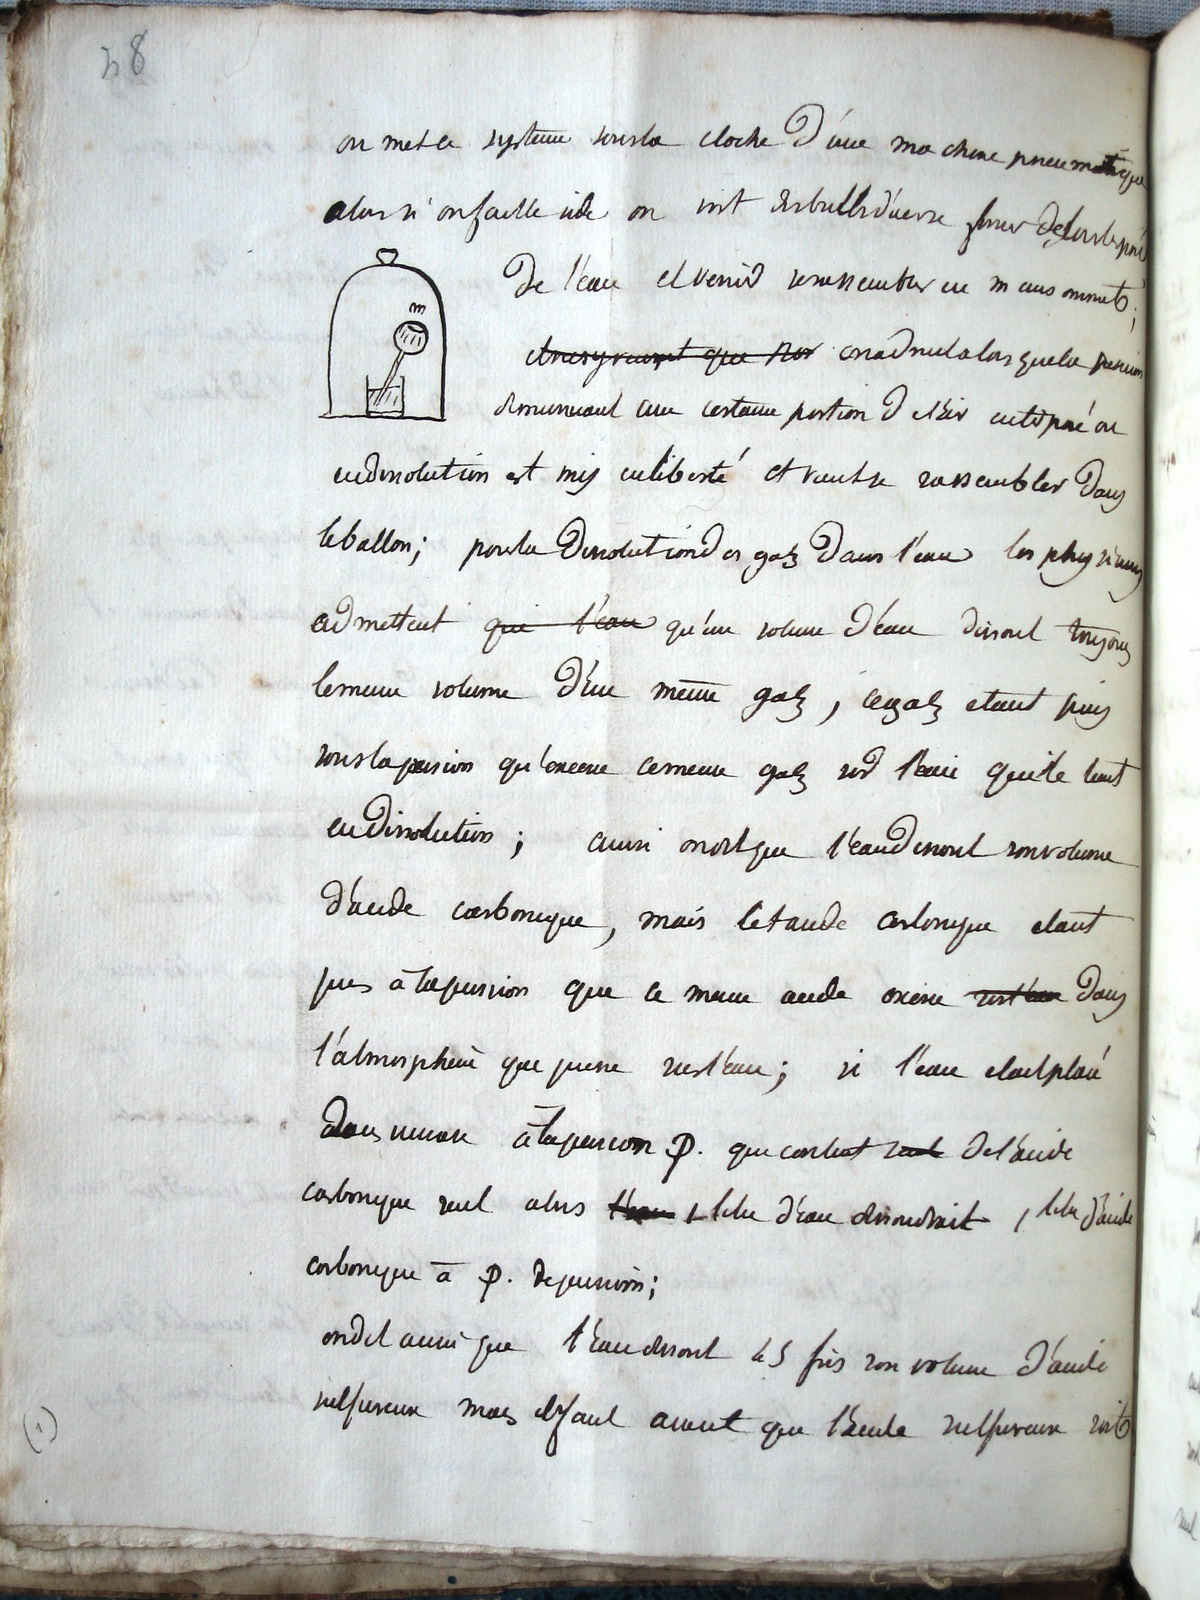 48
on met ce systeme sous la cloche d'une machine pneumatique
alors si on fait le vide on voit des bulles d'air se
de l'eau et venir se rassembler en m au sommet;
que on admet alors que la pression
diminuant une certaine portion d l'air interposé ou
en dissolution est mis en liberté et vient se rassembler dans
le ballon; pour la dissolution des gaz dans l'eau les physiciens
admettent que l'eau qu'un volume d'eau dissout toujours
le meme volume d'un meme gaz, ce gaz etant pris
sous la pression qu'exerce ce meme gaz sur l'eau qui le tient
en dissolution; ainsi on dit que l'eau dissout son volume
d'acide carbonique, mais cet acide carbonique etant
pris à la pression que ce meme acide exerce dans
l'atmosphere que presse sur l'eau; si l'eau etait placé
dans à la pression P. que contient de l'acide
carbonique seul alors l'eau 1 litre d'eau dissoudrait 1 litre d'acide
carbonique à P. de pression;
on dit aussi que l'eau dissout 45 fois son volume d'acide
sulfureux mais il faut avant que l'acide sulfureux soit
(1)
m